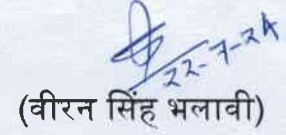 22-7-24
(वीरन सिंह भलावी)